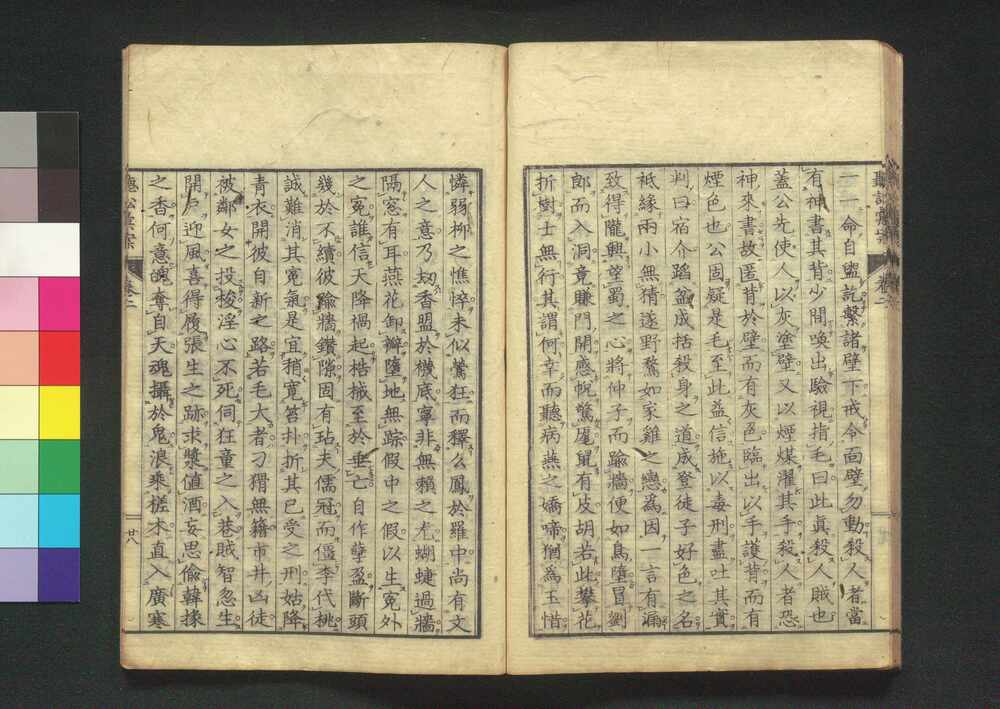 一一命自盥訖繫諸壁下戒令面壁勿動殺人者當
有神書其背少間喚出驗視指毛曰此真殺人賊也
蓋公先使人以灰塗壁又以煙煤濯其手殺人者恐
神來書故匿背於壁而有灰色臨出以手護背而有
煙色也公固疑是毛至此益信施以毒刑盡吐其實
判曰宿介蹈盆成括殺身之道成登徒子好色之名
祇緣兩小無猜遂野鶩如家雞之戀為因一言有漏
致得隴興望蜀之心將仲子而踰牆便如鳥墮冒劉
郎而入洞竟賺門開感帨驚尨鼠有皮胡若此攀花
折樹士無行其謂何幸而聽病燕之嬌啼猶為玉惜
憐弱柳之憔悴未似鶯狂而釋么鳳於羅中尚有文
人之意乃刧香盟於襪底寧非無賴之尤蝴蝶過牆
隔窓有耳蓮花卸瓣墮地無踪假中之假以生冤外
之冤誰信天降禍起梏械至於垂亡自作孽盈斷頭
幾於不續彼踰牆鑽隙固有玷夫儒冠而僵李代桃
誠難消其冤氣是宜稍寬笞扑折其已受之刑姑降
青衣開彼自新之路若毛大者刁猾無籍市井凶徒
被鄰女之投梭淫心不死伺狂童之入巷賊智忽生
開戶迎風喜得履張生之跡求漿值酒妄思偷韓掾
之香何意魄奪自天魂攝於鬼浪乘槎木直入廣寒
聽訟彙案 卷二
廿八